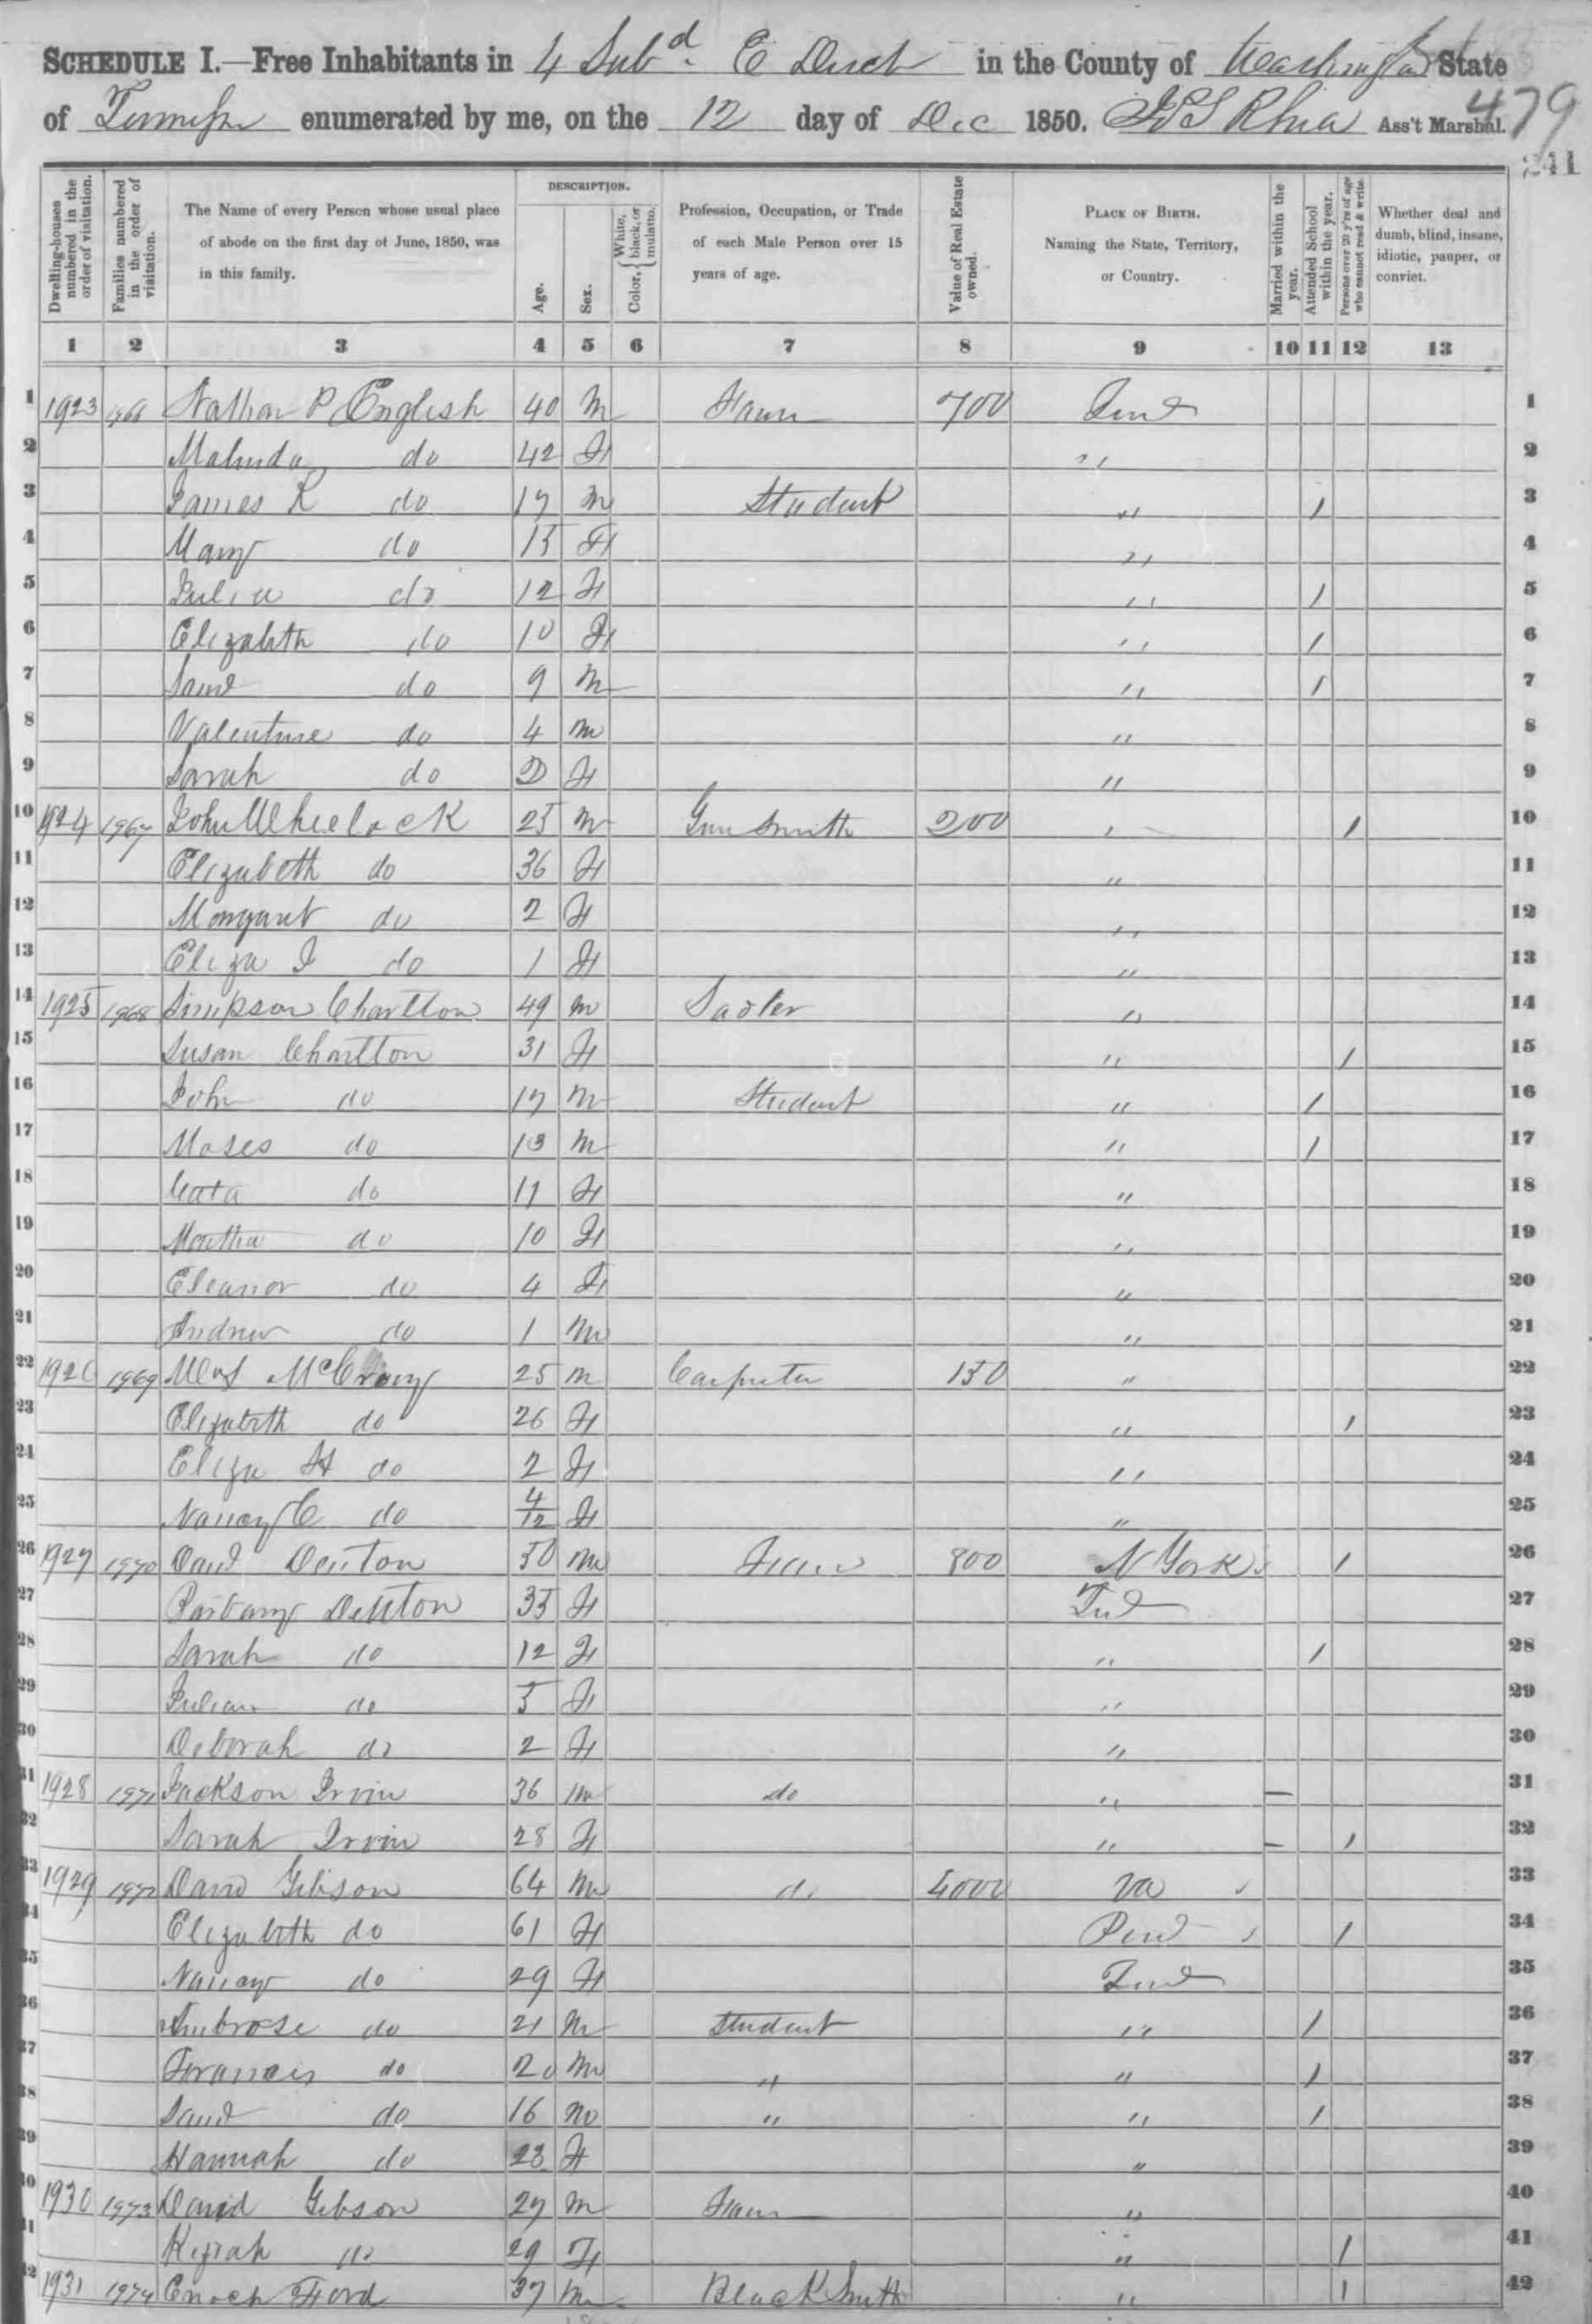 SCHEDULE I.—Free Inhabitants in 4 Subd. E Dirct in the County of Washington State
of Tennessee enumerated by me, on the 12 day of Dec 1850. Rhea Ass't Marshal.
479
241
Dwelling-houses numbered in the order of visitation.
Families numbered in the order of visitation.
The Name of every Person whose usual place of abode on the first day of June, 1850, was in this family.
DESCRIPTION.
Age.
Sex.
Color, { White, black, or mulatto.
Profession, Occupation, or Trade of each Male Person over 15 years of age.
Value of Real Estate owned.
PLACE OF BIRTH. Naming the State, Territory, or Country.
Married within the year.
Attended School within the year.
Persons over 20 y'rs of age who cannot read & write.
Whether deaf and dumb, blind, insane, idiotic, pauper, or convict.
1 2 3 4 5 6 7 8 9 10 11 12 13
1 1923 1966 Nathan P English 40 M Farm 700 Tend 1
2 Malinda do 42 F " 2
3 James K do 17 M Student " / 3
4 Mary do 15 F " 4
5 Julia do 12 F " / 5
6 Elizabeth do 10 F " / 6
7 Saml do 9 M " / 7
8 Valentine do 4 M " 8
9 Sarah do 2 F " 9
10 1924 1967 John Wheelock 25 M Gun Smith 200 " / 10
11 Elizabeth do 36 F " 11
12 Margaret do 2 F " 12
13 Eliza J do 1 F " 13
14 1925 1968 Simpson Charlton 49 M Sadler " 14
15 Susan Charlton 31 F " / 15
16 John do 17 M Student " / 16
17 Moses do 13 M " / 17
18 Cata do 11 F " 18
19 Martha do 10 F " 19
20 Eleanor do 4 F " 20
21 Andrew do 1 M " 21
22 1926 1969 McCrary 25 M Carpenter 150 " 22
23 Elizabeth do 26 F " / 23
24 Eliza H do 2 F " 24
25 Nancy C do 4/12 F " 25
26 1927 1970 Danl Denton 50 M Farm 800 N York / 26
27 Denton 35 F Tend 27
28 Sarah do 12 F " / 28
29 Julian do 5 F " 29
30 Deborah do 2 F " 30
31 1928 1971 Jackson Irvin 36 M do " – 31
32 Sarah Irvin 28 F " – / 32
33 1929 1972 David Gibson 64 M do 4000 Va 33
34 Elizabeth do 61 F Pend / 34
35 Nancy do 29 F Tend 35
36 Ambrose do 21 M Student " / 36
37 Francis do 20 M " " / 37
38 Saml do 16 M " " / 38
39 Hannah do 23 F " 39
40 1930 1973 David Gibson 27 M Farm " 40
41 Keziah do 29 F " / 41
42 1931 1974 Enoch Ford 37 M Black Smith " / 42